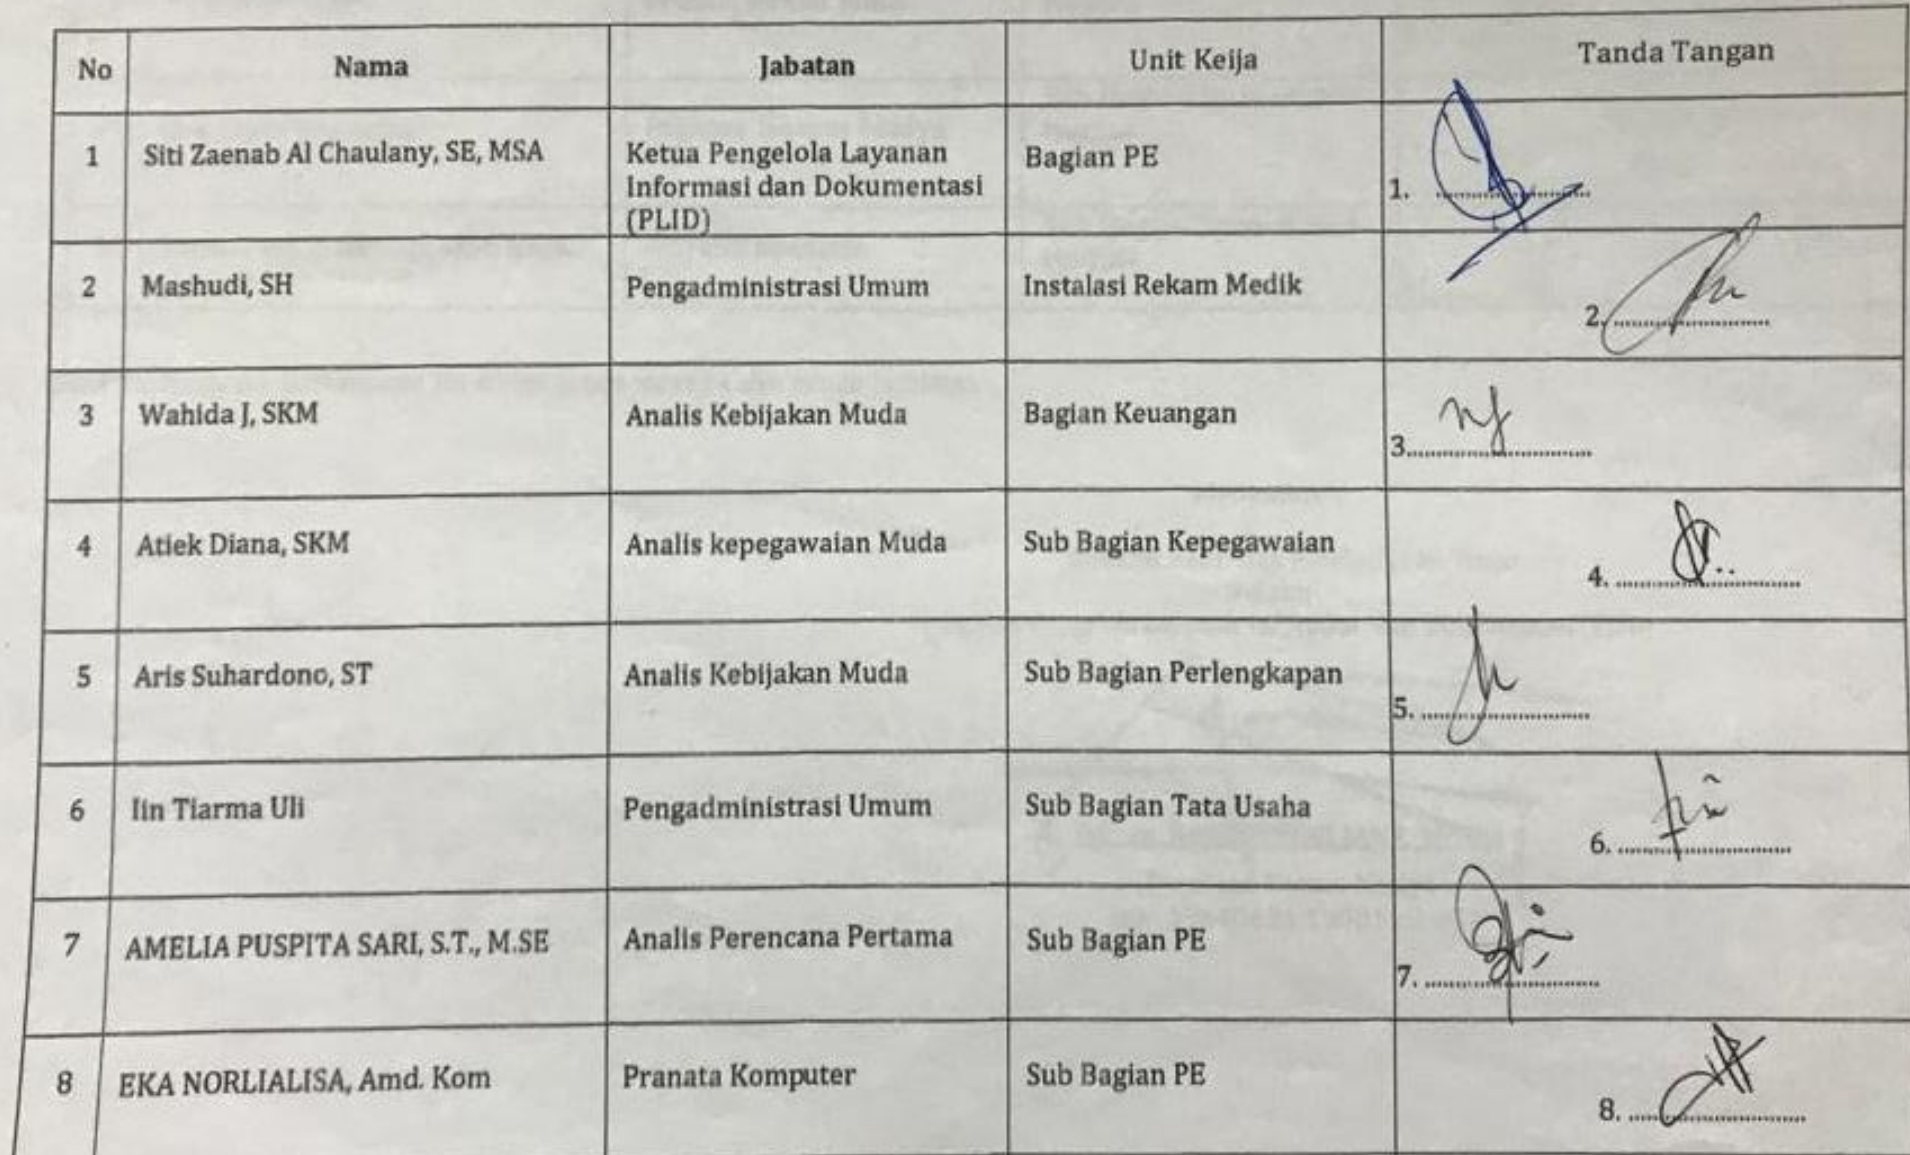 No Nama Jabatan Unit Keija Tanda Tangan
1 Siti Zaenab Al Chaulany, SE, MSA Ketua Pengelola Layanan Bagian PE
Informasi dan Dokumentasi 1. ..............................
(PLID)
2 Mashudi, SH Pengadministrasi Umum Instalasi Rekam Medik
2. ..............................
3 Wahida J, SKM Analis Kebijakan Muda Bagian Keuangan
3...................................
4 Atiek Diana, SKM Analis kepegawaian Muda Sub Bagian Kepegawaian
4. ..................................
5 Aris Suhardono, ST Analis Kebijakan Muda Sub Bagian Perlengkapan
5. ...............................
6 Iin Tiarma Uli Pengadministrasi Umum Sub Bagian Tata Usaha
6. ................................
7 AMELIA PUSPITA SARI, S.T., M.SE Analis Perencana Pertama Sub Bagian PE
7. ................................
8 EKA NORLIALISA, Amd. Kom Pranata Komputer Sub Bagian PE
8. ................................